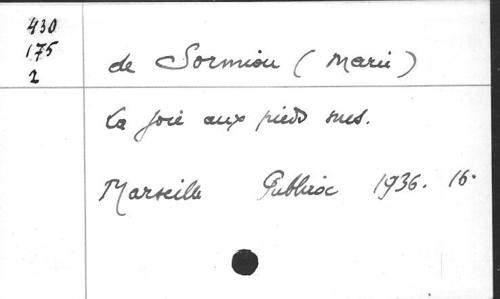 430
175
2
de Sormiou (Marie)
La joie aux pieds nus.
Marseille Publiroc 1936. 16.